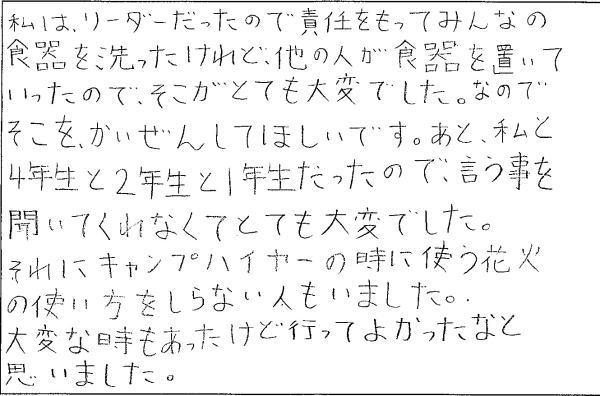 私は、リーダーだったので責任をもってみんなの
食器を洗ったけれど、他の人が食器を置いて
いったので、そこがとても大変でした。なので
そこを、かいぜんしてほしいです。あと、私と
4年生と2年生と1年生だったので、言う事を
聞いてくれなくてとても大変でした。
それにキャンプハイヤーの時に使う花火
の使い方をしらない人もいました。
大変な時もあったけど行ってよかったなと
思いました。